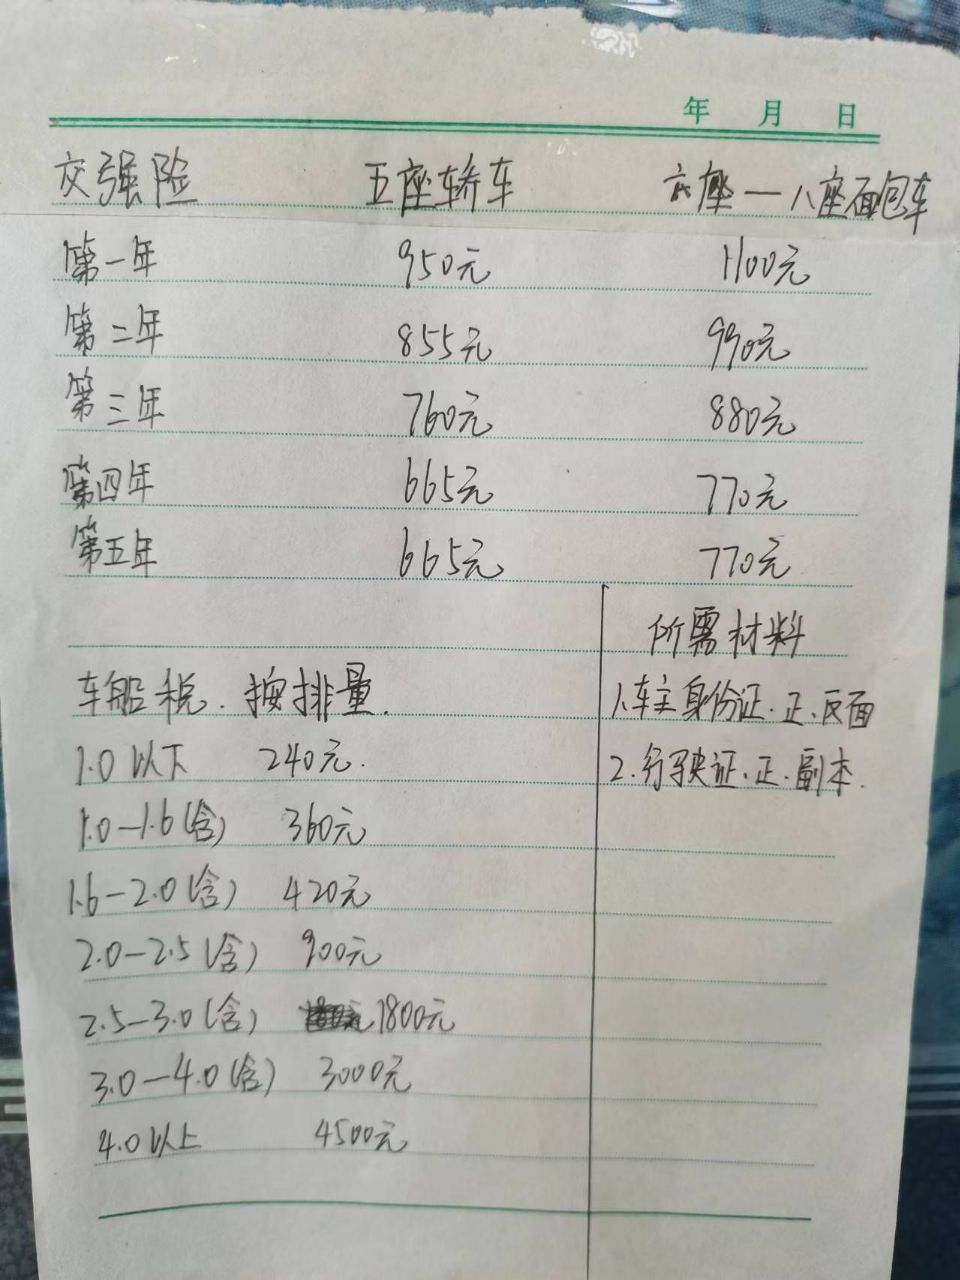 年 月 日
交强险 五座轿车 六座一八座面包车
第一年 950元 1100元
第二年 855元 990元
第三年 760元 880元
第四年 665元 770元
第五年 665元 770元
所需材料
车船税.按排量.
1.车主身份证.正.反面
1.0以下 240元.
2.行驶证.正.副本.
1.0-1.6(含) 360元
1.6-2.0(含) 420元
2.0-2.5(含) 900元
2.5-3.0(含) 1800元
3.0-4.0(含) 3000元
4.0以上 4500元